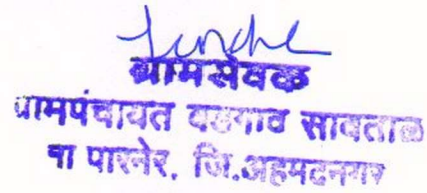 ग्रामसेवक
ग्रामपंचायत वडगाव सावताळ
ता पारनेर. जि.अहमदनगर